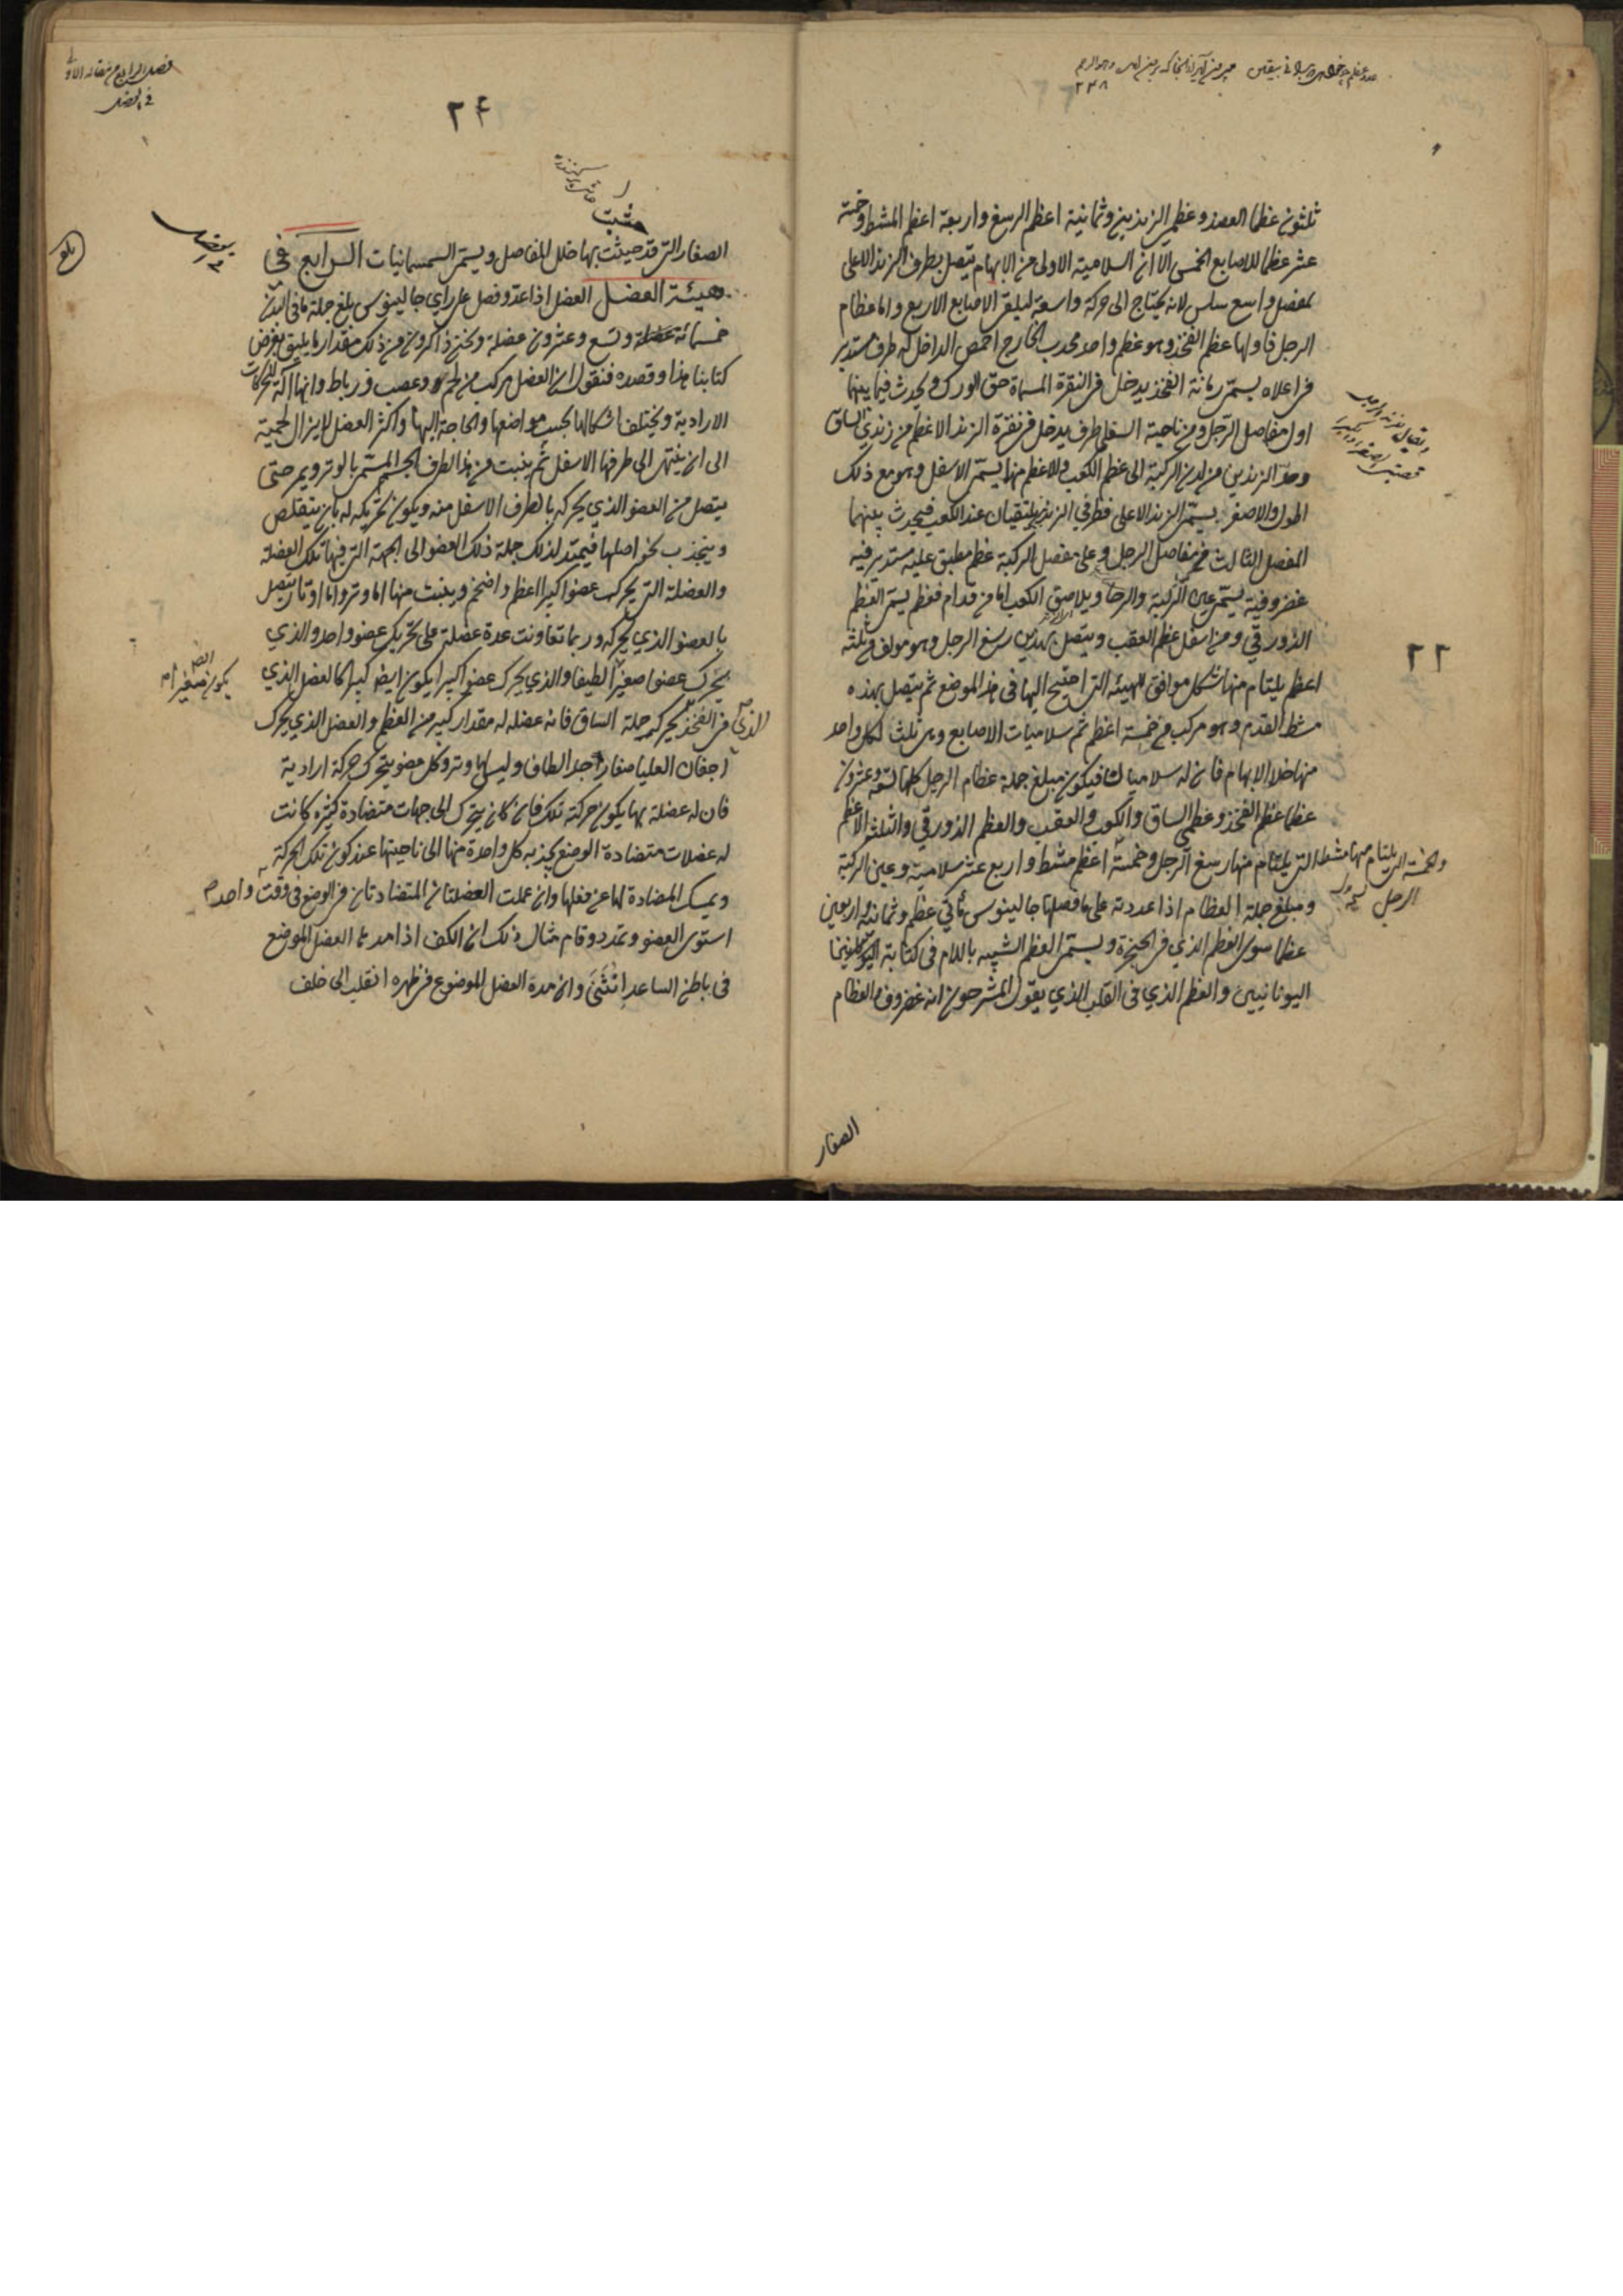 ثلثون عظما العضد وعظمي الزندين وثمانية اعظم الرسغ واربعة اعظم المشط وخمسة
عشر عظما للاصابع الخمس الا ان السلامية الاولى من الابهام تتصل بطرف الزند الاعلى
بمفصل واسع سلس لانه يحتاج الى حركة واسعة ليلقى الاصابع الاربع واما عظام
الرجل فاولها عظم الفخذ وهو عظم واحد محدب الخارج اخمص الداخل له طرف مستدير
في اعلاه يسمى رمانة الفخذ يدخل في النقرة المسماة حق الورك ويحدث فيما بينهما
اول مفاصل الرجل ومن ناحية السفلى طرف يدخل في نقرة الزند الاعظم من زندي الساق
وحد الزندين من لدن الركبة الى عظم الكعب والاعظم منها يسمى الاسفل وهو مع ذلك
اطول والاصغر يسمى الزند الاعلى فطرفي الزندين يلتقيان عند الكعب فيحدث بينهما
المفصل الثالث من مفاصل الرجل وعلى مفصل الركبة عظم مطبق عليه مستدير فيه
غضروفية يسمى عين الركبة والرحا ويلاصق الكعب اما من قدام فعظم يسمى العظم
الزورقي ومن اسفل عظم العقب ويتصل بهذين رسغ الرجل وهو مولف من ثلثة
اعظم يلتام منها شكل موافق للهيئة التي احتيج اليها في هذا الموضع ثم يتصل بهذه
مشط القدم وهو مركب من خمسة اعظم ثم سلاميات الاصابع وهي ثلث لكل واحد
منها خلا الابهام فان له سلاميتان فيكون مبلغ جملة عظام الرجل كلها تسعة وعشرون
عظما عظم الفخذ وعظمي الساق والكعب والعقب والعظم الزورقي والثلثة الاعظم
التي يلتام منها رسغ الرجل وخمسة اعظم مشط واربع عشر سلامية وعين الركبة
والخمسة التي يلتام منها مشط
الرجل
ومبلغ جملة العظام اذا عددته على ما فصلها جالينوس مائتي عظم وثمانية واربعين
عظما سوى العظم الذي في الحنجرة ويسمى العظم الشبيه باللام في كتابة
اليونانيين والعظم الذي في القلب الذي يقول المشرحون انه غضروف والعظام
٢٢
الصغار
فصل الرابع من مقاله الاولى
في العضل
٢۴
حشيت
الصغار التي قد حيثت بها خلل المفاصل ويسمى السمسمانيات الرابع في
هيئة العضل العضل اذا عد وفصل على راي جالينوس بلغ جملة ما في البدن
خمسمائة عضلة وتسع وعشرون عضلة ونحن ذاكرون من ذلك مقدار ما يليق بغرض
كتابنا هذا وقصده فنقول ان العضل مركب من لحم وعصب ورباط وانها آلة للحركات
الارادية ويختلف اشكالها بحسب مواضعها والحاجة اليها واكثر العضل لا يزال لحمية
الى ان ينتهي الى طرفها الاسفل ثم ينبت من هذا الطرف الجسم المسمى بالوتر ويمر حتى
يتصل من العضو الذي يحركه بالطرف الاسفل منه ويكون تحريكه له بان يتقلص
وينجذب نحو اصلها فيمتد لذلك جملة ذلك العضو الى الجهة التي فيها تلك العضلة
والعضلة التي يحرك عضوا كبيرا اعظم واضخم وينبت منها اما وتر واما اوتار يتصل
بالعضو الذي يحركه وربما تعاونت عدة عضلة على تحريك عضو واحد والذي
يحرك عضوا صغيرا لطيفا والذي يحرك عضوا كبيرا يكون ايضا كبيرا كالعضل الذي
يكون صغيرا
الذي في الفخذ يحركه جملة الساق فانه عضله له مقدار كبير من العظم والعضل الذي يحرك
اجفان العليا صغار جدا لطاف وليس لها وتر وكل عضو يتحرك حركة ارادية
فان له عضلة بها يكون حركته تلك فان كان يتحرك الى جهات متضادة كثيرة كانت
له عضلات متضادة الوضع يجذبه كل واحدة منها الى ناحيتها عند كون تلك الحركة
ويمسك المضادة لها عن فعلها وان عملت العضلتان المتضادتان في الوضع في وقت واحد
استوى العضو وتمدد وقام مثال ذلك ان الكف اذا مدها العضل الموضع
في باطن الساعد انثنى وان مدة العضل الموضوع في ظهره انقلب الى خلف